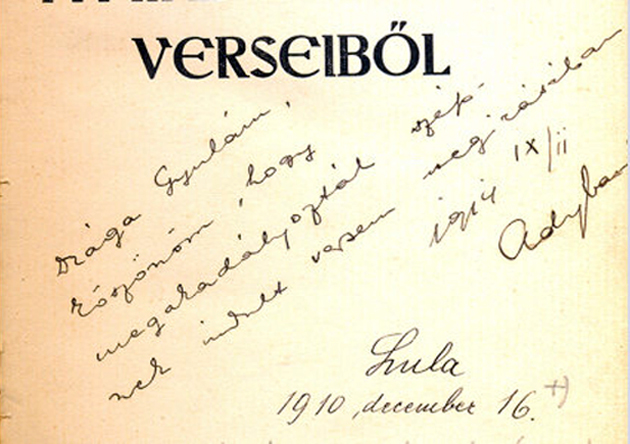 VERSEIBŐL
Drága Gyulám,
köszönöm, hogy
megakadályoztál szép-
nek indult versem megirásában
1914 IX/11
Lula
1910, december 16. +)